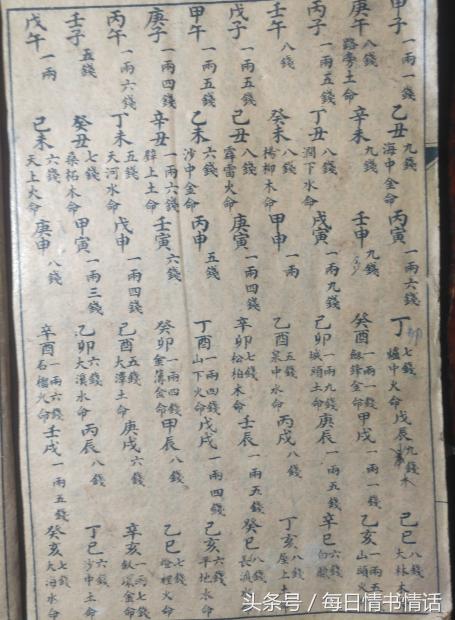 甲子 一兩一錢 乙丑 九錢 海中金命 丙寅 一兩六錢 丁卯 七錢 爐中火命 戊辰 九錢 木 己巳 八錢 大林木
庚午 八錢 路旁土命 辛未 九錢 壬申 九錢 癸酉 一兩一錢 劍鋒金命 甲戌 一兩一錢 乙亥 一兩五 山頭火
丙子 一兩五錢 丁丑 八錢 澗下水命 戊寅 一兩九錢 己卯 一兩九錢 城頭土命 庚辰 一兩五錢 辛巳 六錢 白臘
壬午 八錢 癸未 八錢 楊柳木命 甲申 一兩 乙酉 五錢 泉中水命 丙戌 八錢 丁亥 八錢 屋上土
戊子 一兩五錢 己丑 八錢 霹雷火命 庚寅 一兩四錢 辛卯 七錢 松柏木命 壬辰 一兩五錢 癸巳 八錢 長流水
甲午 一兩五錢 乙未 六錢 沙中金命 丙申 五錢 丁酉 一兩四錢 山下火命 戊戌 一兩四錢 己亥 六錢 平地木命
庚子 一兩四錢 辛丑 一兩六錢 辟上土命 壬寅 六錢 癸卯 一兩四錢 金簿金命 甲辰 八錢 乙巳 七錢 燈裡火命
丙午 一兩六錢 丁未 五錢 天河水命 戊申 一兩四錢 己酉 五錢 大澤土命 庚戌 六錢 辛亥 一兩七錢 釵環金命
壬子 五錢 癸丑 七錢 桑柘木命 甲寅 一兩三錢 乙卯 六錢 大溪水命 丙辰 八錢 丁巳 六錢 沙中土命
戊午 一兩 己未 六錢 天上火命 庚申 八錢 辛酉 一兩六錢 石榴火命 壬戌 一兩五錢 癸亥 七錢 大海水命
头条号 / 每日情书情话